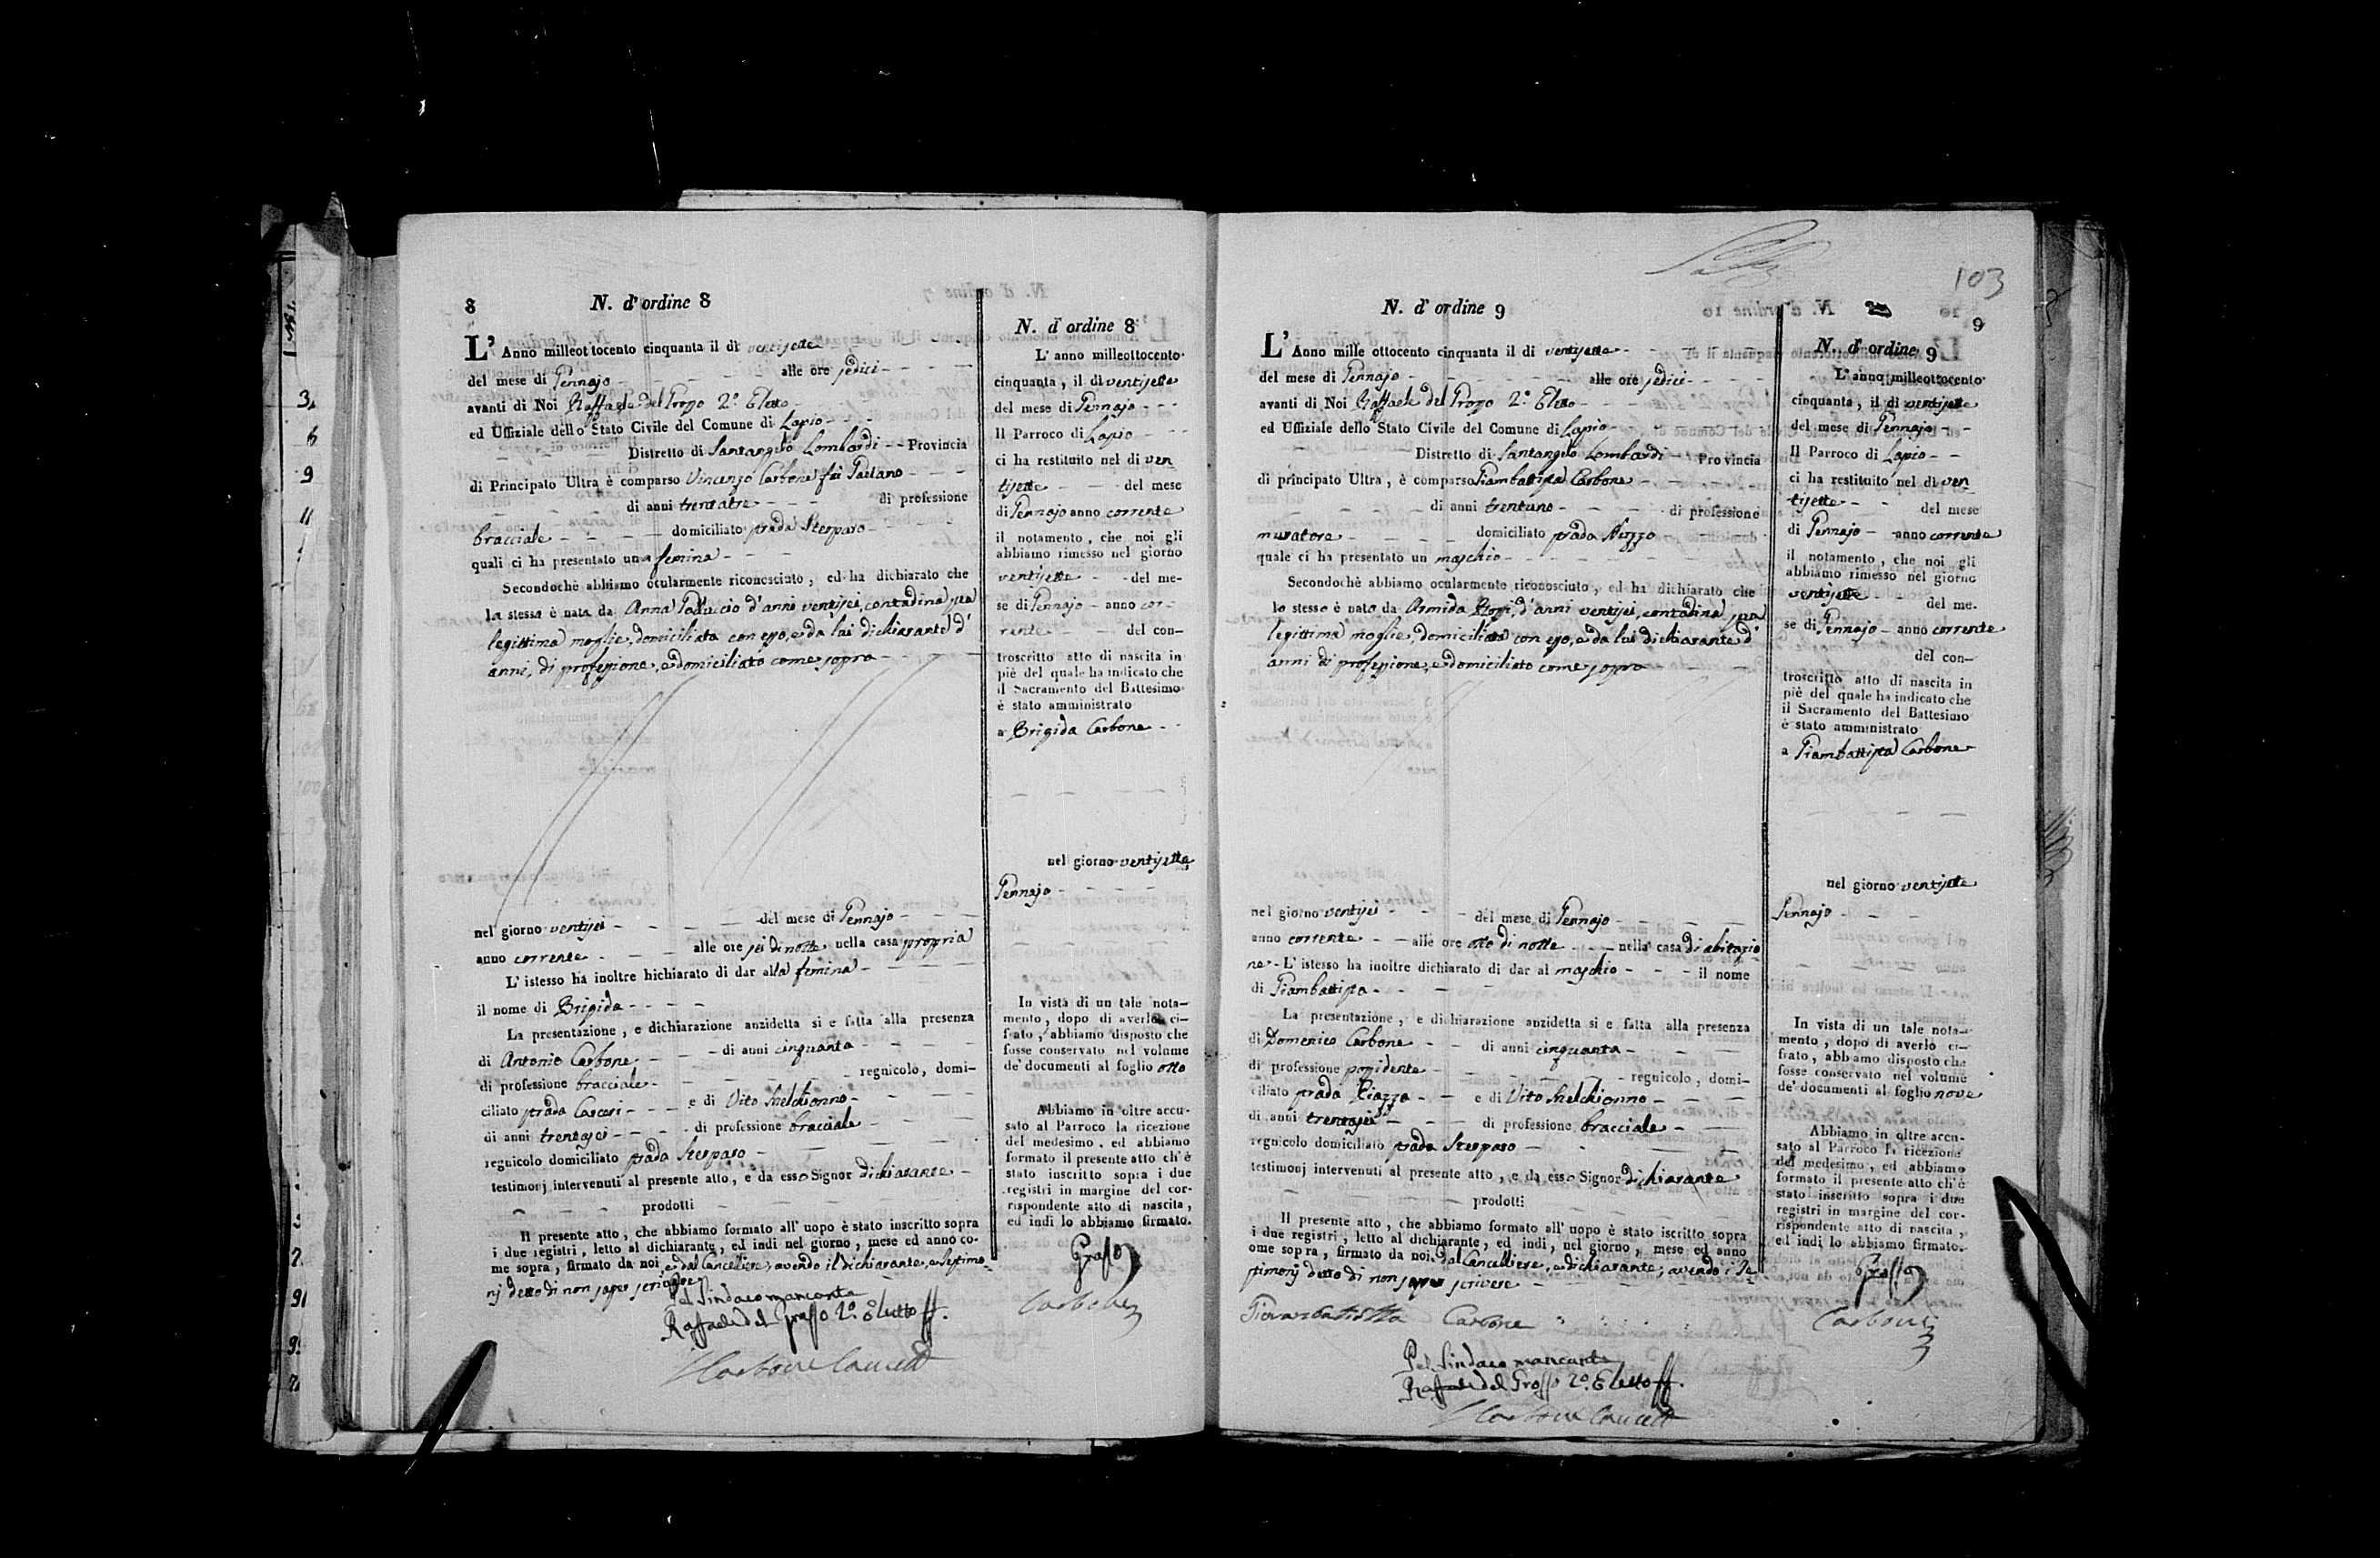 8
N. d' ordine 8
L' Anno milleottocento cinquanta il dì ventisette
del mese di Gennajo alle ore sedici
avanti di Noi Raffaele del Grosso 2.º Eletto
ed Uffiziale dello Stato Civile del Comune di Lapio
Distretto di Santangelo Lombardi Provincia
di Principato Ultra è comparso Vincenzo Carbone fu
di anni trentatre di professione
bracciale domiciliato strada Sterparo
quali ci ha presentato una femina
Secondochè abbiamo ocularmente riconosciuto, ed ha dichiarato che
la stessa è nata da Anna d'anni ventisei, contadina sua
legittima moglie, domiciliata con esso, e da lui dichiarante d'
anni, di professione, e domiciliato come sopra
nel giorno ventisei del mese di Gennajo
anno corrente alle ore sei di notte nella casa propria
L' istesso ha inoltre hichiarato di dar alla femina
il nome di Brigida
La presentazione, e dichiarazione anzidetta si e fatta alla presenza
di Antonio Carbone di anni cinquanta
di professione bracciale regnicolo, domi-
ciliato strada e di Vito Melchionno
di anni trentasei di professione bracciale
regnicolo domiciliato strada Sterparo
testimonj intervenuti al presente atto, e da esso Signor dichiarante
prodotti
Il presente atto, che abbiamo formato all' uopo è stato inscritto sopra
i due registri, letto al dichiarante, ed indi nel giorno, mese ed anno co-
me sopra, firmato da noi, e dal Cancelliere, avendo il dichiarante, e testimo-
nj detto di non saper scrivere
Pel Sindaco mancante
Raffaele del Grosso 2.º Eletto ff.
Carbone Cancell
N. d' ordine 8
L' anno milleottocento-
cinquanta, il dì ventisette
del mese di Gennajo
Il Parroco di Lapio
ci ha restituito nel dì ven
tisette del mese
di Gennajo anno corrente
il notamento, che noi gli
abbiamo rimesso nel giorno
ventisette del me-
se di Gennajo anno cor-
rente del con-
troscritto atto di nascita in
piè del quale ha indicato che
il Sacramento del Battesimo
è stato amministrato
a Brigida Carbone
nel giorno ventisette
Gennajo
In vista di un tale nota-
mento, dopo di averlo ci-
frato, abbiamo disposto che
fosse conservato nel volume
de' documenti al foglio otto
Abbiamo in oltre accu-
sato al Parroco la ricezione
del medesimo, ed abbiamo
formato il presente atto ch'è
stato inscritto sopra i due
registri in margine del cor-
rispondente atto di nascita,
ed indi lo abbiamo firmato.
Grosso
Carbone
103
9
N. d' ordine 9
L' Anno mille ottocento cinquanta il di ventisette
del mese di Gennajo alle ore sedici
avanti di Noi Raffaele del Grosso 2.º Eletto
ed Uffiziale dello Stato Civile del Comune di Lapio
Distretto di Santangelo Lombardi Provincia
di principato Ultra, è comparso Giambattista Carbone
di anni trentuno di professione
muratore domiciliato strada Nuzzo
quale ci ha presentato un maschio
Secondochè abbiamo ocularmente riconosciuto, ed ha dichiarato che
lo stesso è nato da Armida d'anni ventisei, contadina, sua
legittima moglie, domiciliata con esso, e da lui dichiarante d'
anni di professione, e domiciliato come sopra
nel giorno ventisei del mese di Gennajo
anno corrente alle ore otto di notte nella casa di abitazio
ne L' istesso ha inoltre dichiarato di dar al maschio il nome
di Giambattista
La presentazione, e dichiarazione anzidetta si e fatta alla presenza
di Domenico Carbone di anni cinquanta
di professione possidente regnicolo, domi-
ciliato strada Piazza e di Vito Melchionno
di anni trentasei di professione bracciale
regnicolo domiciliato strada Sterparo
testimonj intervenuti al presente atto, e da esso Signor dichiarante
prodotti
Il presente atto, che abbiamo formato all' uopo è stato iscritto sopra
i due registri, letto al dichiarante, ed indi, nel giorno, mese ed anno
ome sopra, firmato da noi, dal Cancelliere, e dichiarante; avendo i te-
stimonj detto di non saper scrivere
Giovanbatista Carbone
Pel Sindaco mancante
Raffaele del Grosso 2.º Eletto ff.
Carbone Cancell
N. d' ordine 9
L' anno milleottocento-
cinquanta, il di ventisette
del mese di Gennajo
Il Parroco di Lapio
ci ha restituito nel dì ven
tisette del mese
di Gennajo anno corrente
il notamento, che noi gli
abbiamo rimesso nel giorno
ventisette del me-
se di Gennajo anno corrente
del con-
troscritto atto di nascita in
piè del quale ha indicato che
il Sacramento del Battesimo
è stato amministrato
a Giambattista Carbone
nel giorno ventisette
Gennajo
In vista di un tale nota-
mento, dopo di averlo ci-
frato, abbiamo disposto che
fosse conservato nel volume
de' documenti al foglio nove
Abbiamo in oltre accu-
sato al Parroco la ricezione
del medesimo, ed abbiamo
formato il presente atto ch'è
stato inscritto sopra i due
registri in margine del cor-
rispondente atto di nascita,
ed indi lo abbiamo firmato.
Grosso
Carbone